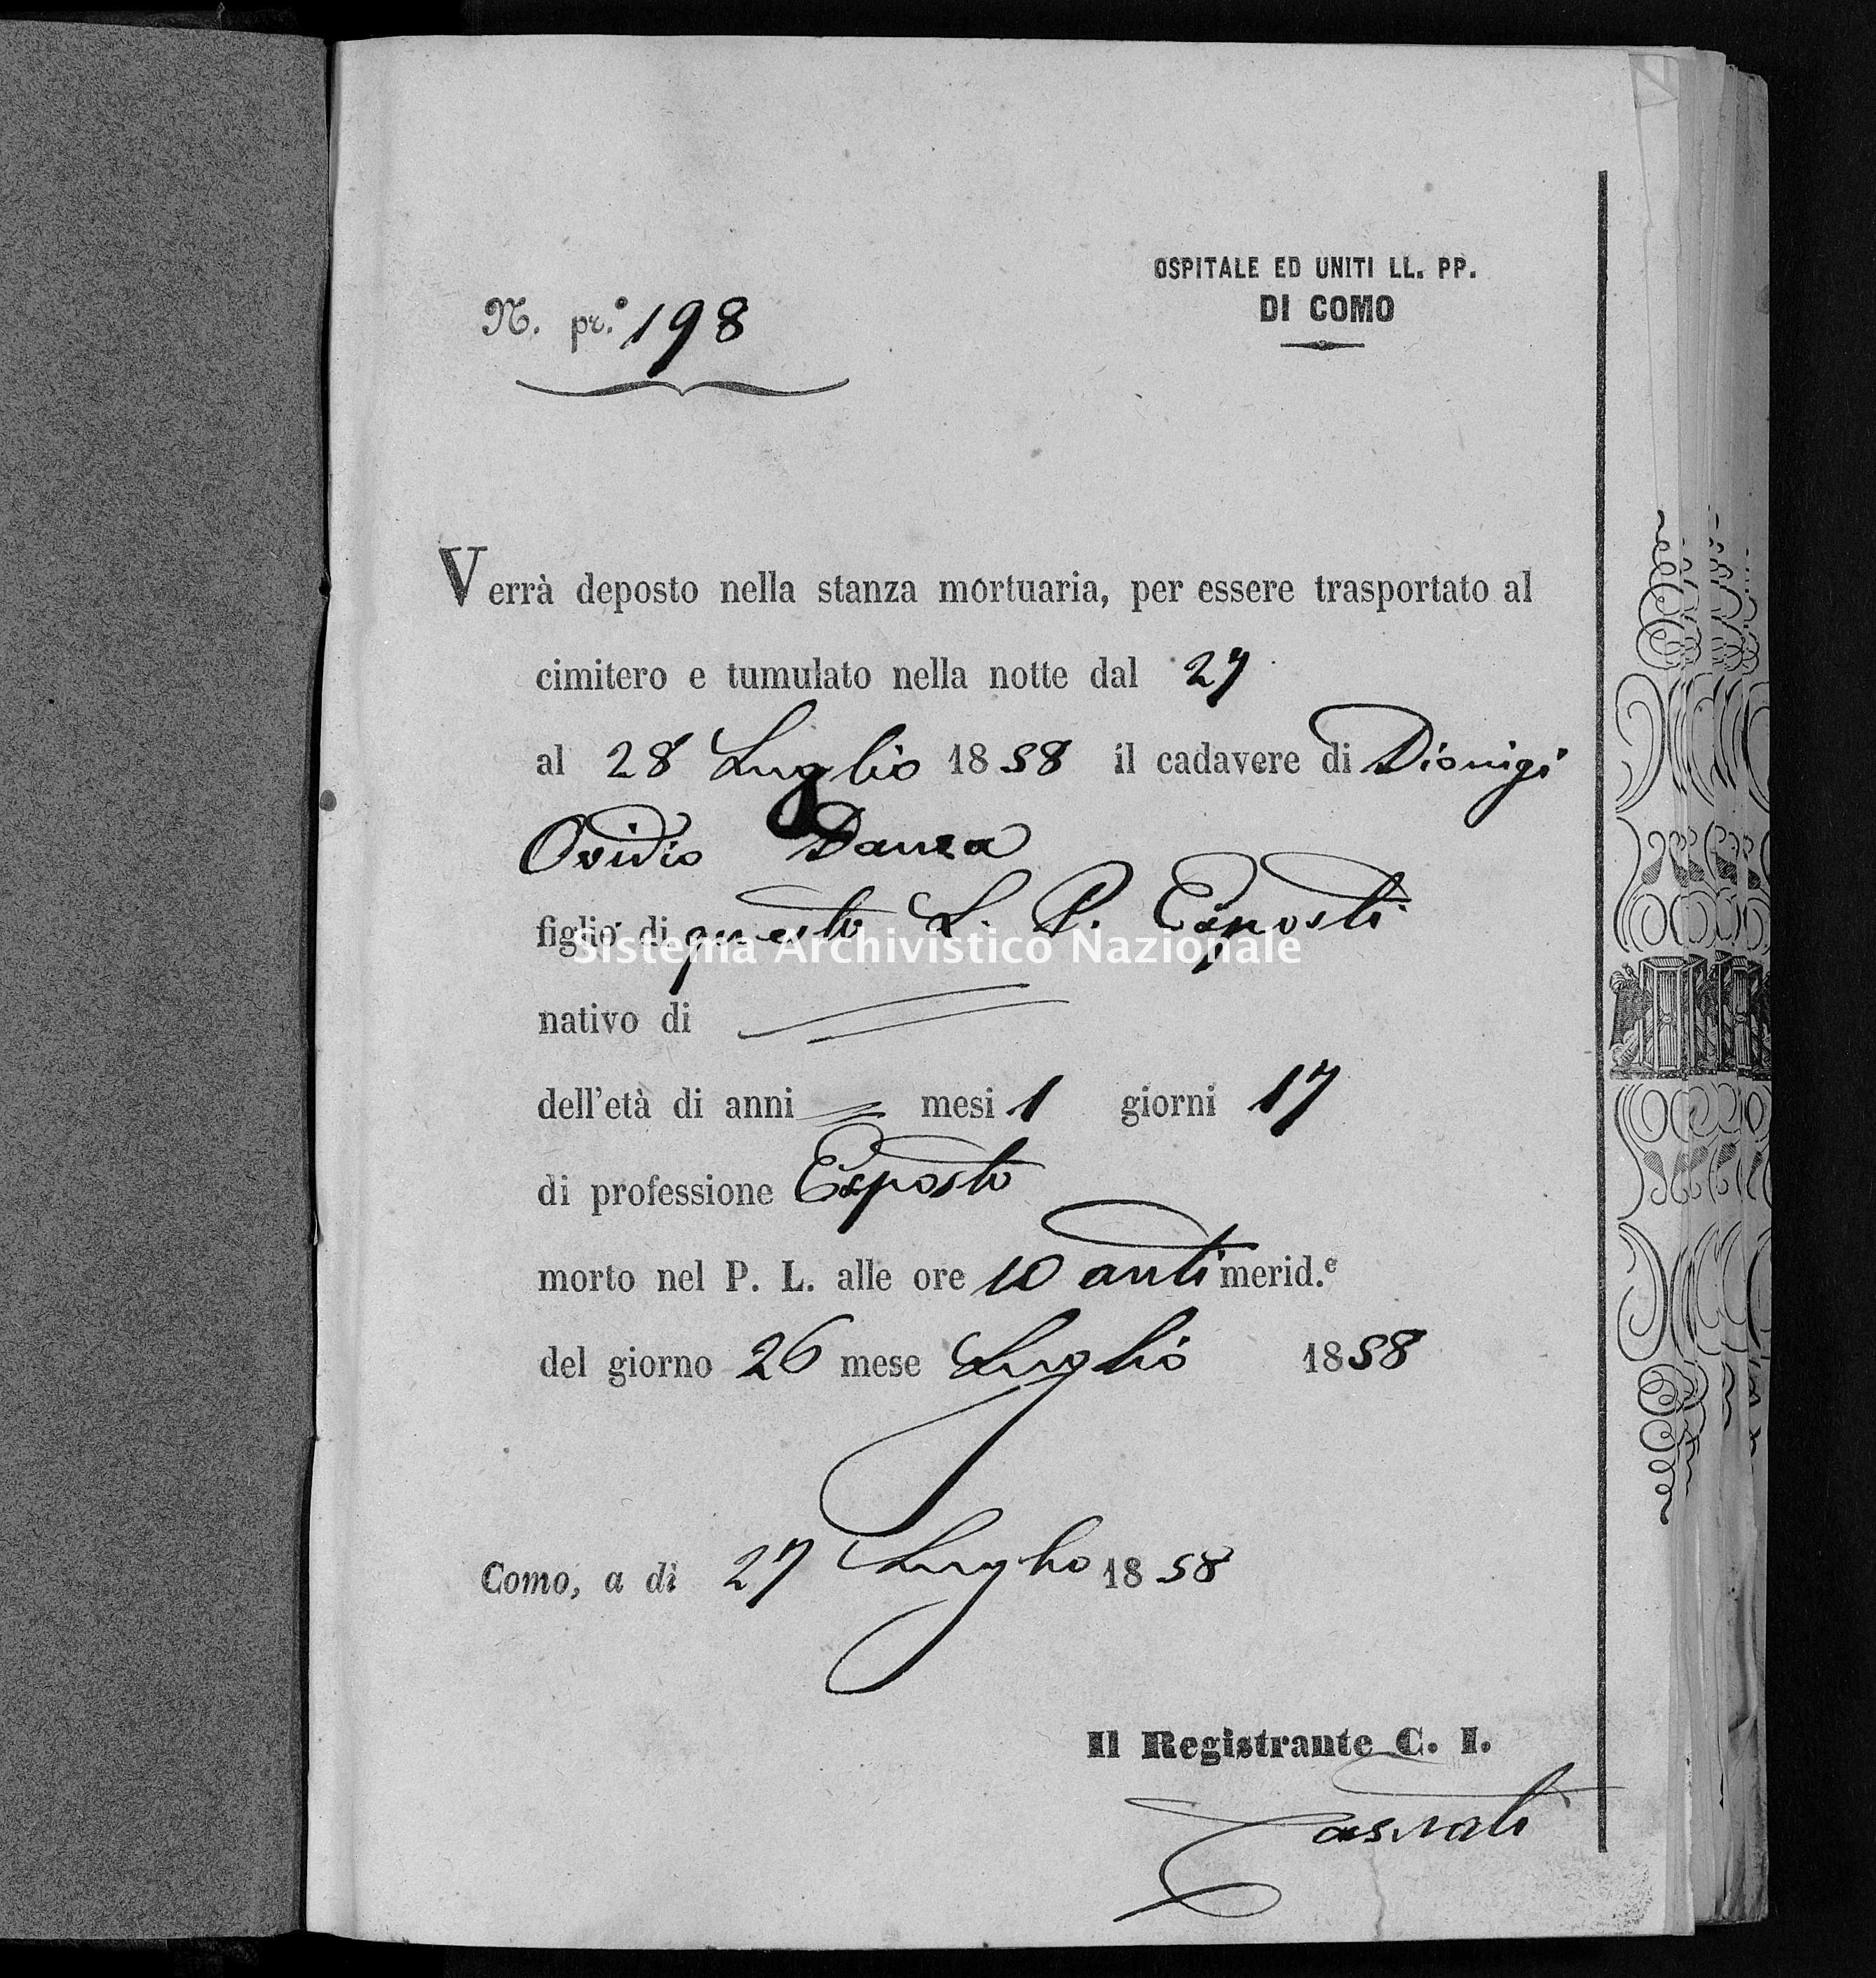 OSPITALE ED UNITI LL. PP.
DI COMO
N. pr.º 198
Verrà deposto nella stanza mortuaria, per essere trasportato al
cimitero e tumulato nella notte dal 27
al 28 Luglio 1858 il cadavere di Dionigi
Ovidio Danza
figlio di questo L. P. Esposti
Sistema Archivistico Nazionale
nativo di
dell'età di anni = mesi 1 giorni 17
di professione Esposto
morto nel P. L. alle ore 10 antimerid.e
del giorno 26 mese Luglio 1858
Como, a dì 27 Luglio 1858
Il Registrante C. I.